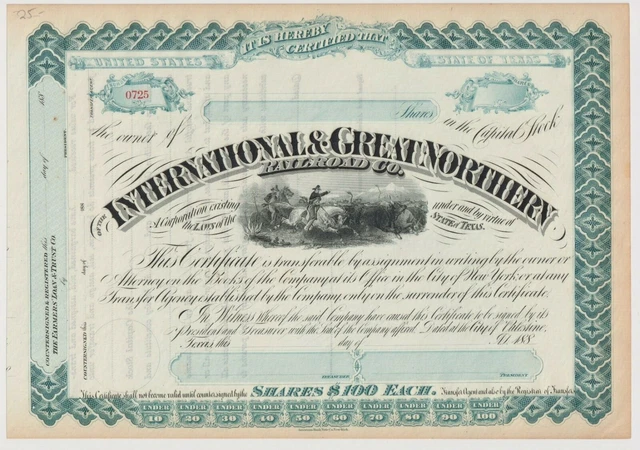 25-
IT IS HEREBY
CERTIFIED THAT
UNITED STATES
STATE OF TEXAS
0725
Shares
the owner of
in the Capital Stock
OF THE
INTERNATIONAL & GREAT NORTHERN
RAILROAD CO.
A Corporation existing
under and by virtue of
the LAWS of the
STATE of TEXAS.
This Certificate is transferable by assignment in writing by the owner or
Attorney on the Books of the Company at its Office in the City of New York or at any
Transfer Agency established by the Company only on the surrender of this Certificate.
In Witness Whereof the said Company have caused this Certificate to be signed by its
President and Treasurer with the Seal of the Company affixed. Dated at the City of Palestine,
Texas this
day of
A.D. 188
TREASURER
PRESIDENT
This Certificate shall not become valid until countersigned by the
SHARES $100 EACH.
Transfer Agent and also by the Registrar of Transfers
UNDER UNDER UNDER UNDER UNDER UNDER UNDER UNDER UNDER UNDER
10 20 30 40 50 60 70 80 90 100
COUNTERSIGNED & REGISTERED this
day of
188
THE FARMERS' LOAN & TRUST CO.
by
COUNTERSIGNED this
day of
188